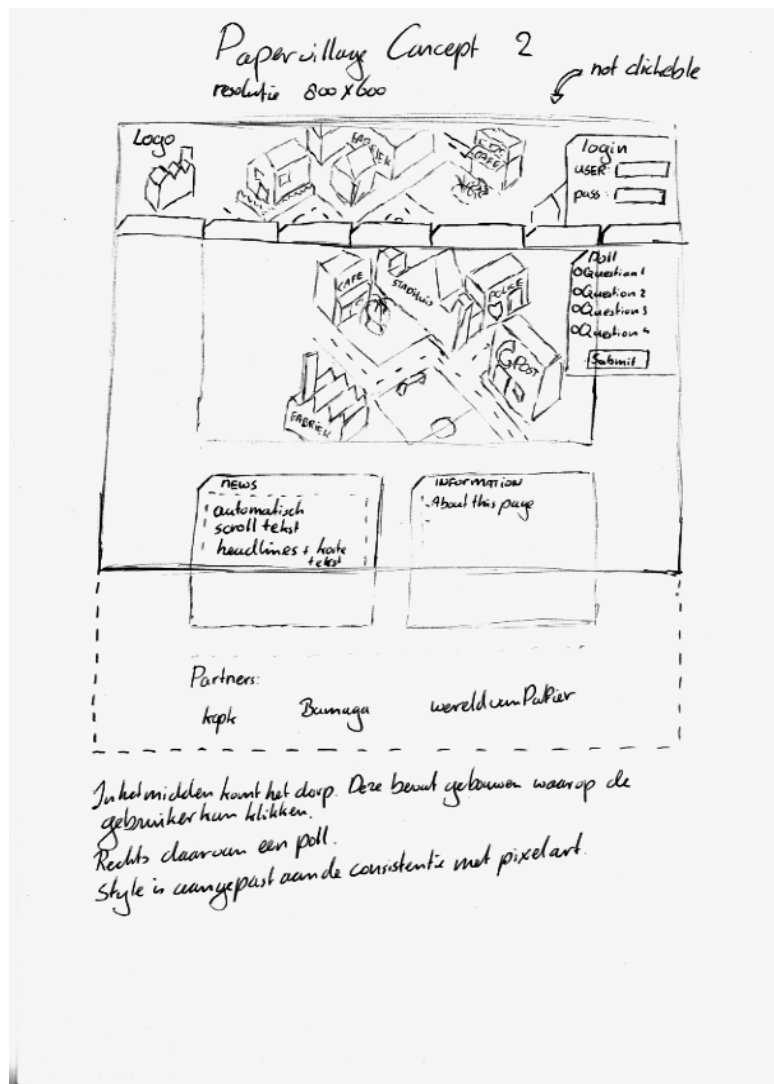 Papervillage Concept 2
resolutie 800 x 600
not clickeble
Logo
FABRIEK
CAFE
login
USER:
pass:
CAFE
STADHUIS
POLICE
POST
FABRIEK
Poll
Question 1
Question 2
Question 3
Question 4
Submit
NEWS
automatisch
scroll tekst
headlines + korte
tekst
INFORMATION
About this page
Partners:
kcpk
Bumaga
wereld van Papier
In het midden komt het dorp. Deze bevat gebouwen waarop de
gebruiker kan klikken.
Rechts daarvan een poll.
Style is aangepast aan de consistentie met pixelart.